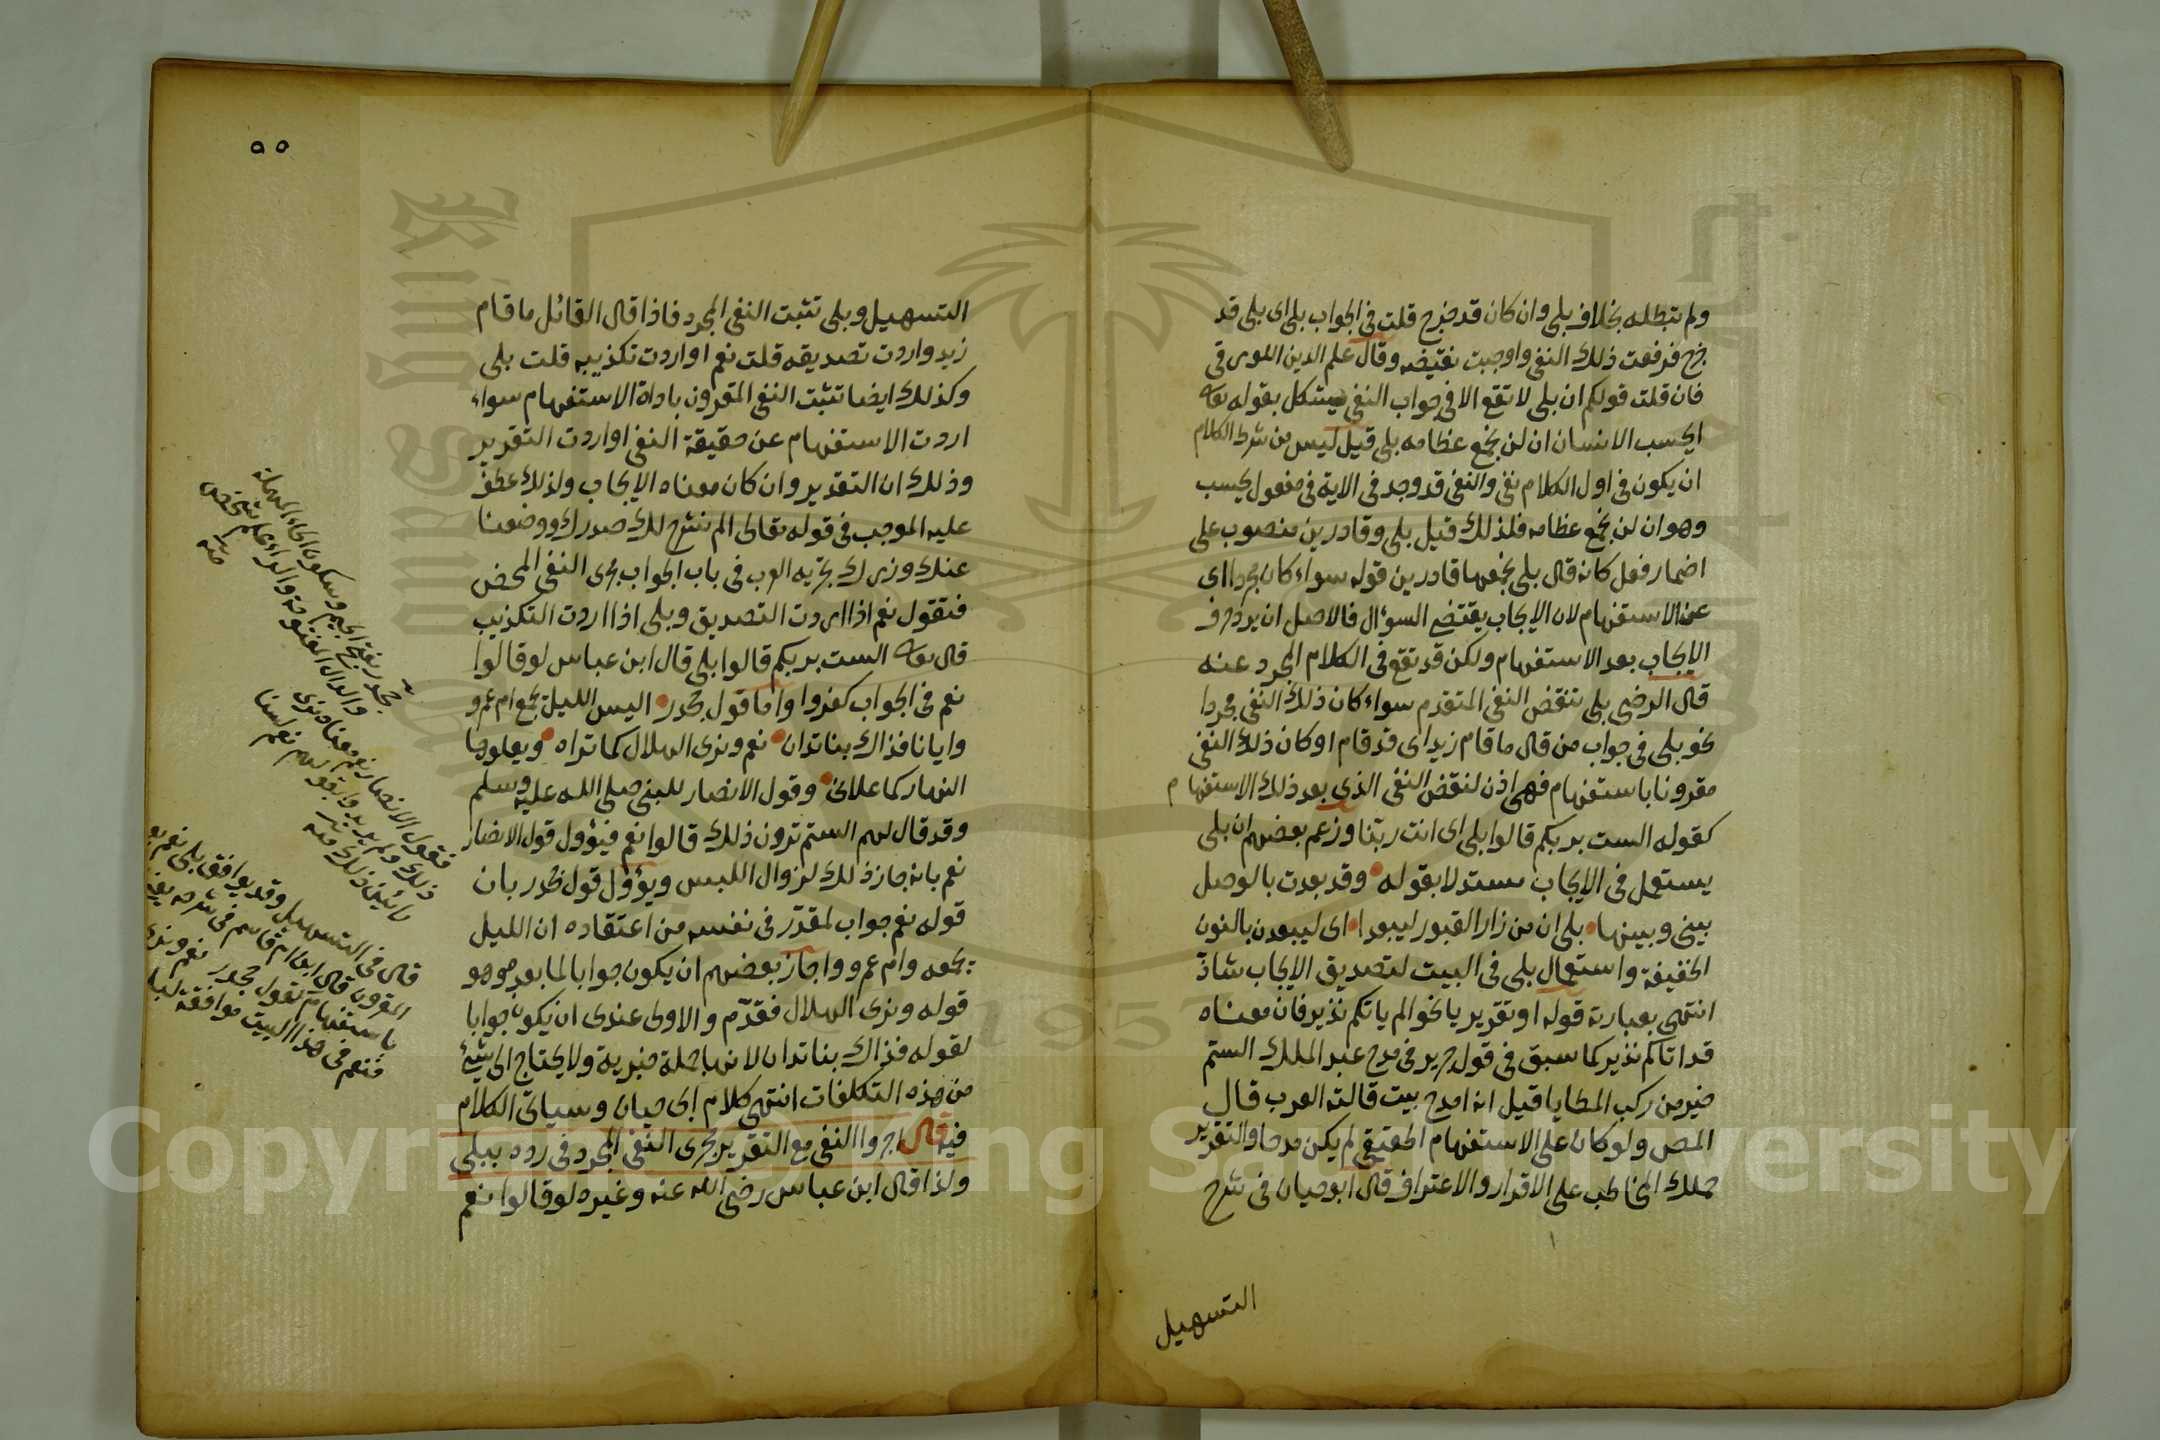 ولم تبطله بخلاف بلى وان كان قد خرج قلت في الجواب بلى اى بلى قد
خرج فرفعت ذلك النفى واوجبت نقيضه وقال علم الدين اللورقى
فان قلت قولكم ان بلى لا تقع الا في جواب النفى يشكل بقوله تعالى
ايحسب الانسان ان لن نجمع عظامه بلى قيل ليس من شرط الكلام
ان يكون في اول الكلام نفى والنفى قد وجد في الاية في مفعول يحسب
وهو ان لن نجمع عظامه فلذلك قيل بلى وقادرين منصوب على
اضمار فعل كانه قال بلى نجمعها قادرين قوله سواء كان مجردا اى
عن الاستفهام لان الايجاب يقتضى السؤال فالاصل ان يرد حرف
الايجاب بعد الاستفهام ولكن قد تقع في الكلام المجرد عنه
قال الرضى بلى تنقض النفى المتقدم سواء كان ذلك النفى مجردا
نحو بلى في جواب من قال ما قام زيد اى قد قام او كان ذلك النفى
مقرونا باستفهام فهى اذن لنقض النفى الذى بعد ذلك الاستفهام
كقوله الست بربكم قالوا بلى اى انت ربنا وزعم بعضهم ان بلى
يستعمل في الايجاب مستدلا بقوله وقد بعدت بالوصل
بينى وبينها بلى ان من زار القبور ليبعدا اى ليبعدن بالنون
الخفيفة واستعمال بلى في البيت لتصديق الايجاب شاذ
انتهى بعبارته قوله او تقرير يا نحو الم ياتكم نذير فان معناه
قد اتاكم نذير كما سبق في قول جرير في مدح عبد الملك الستم
خير من ركب المطايا قيل انه امدح بيت قالته العرب قال
المص ولو كان على الاستفهام الحقيقى لم يكن مدحا والتقرير
حملك المخاطب على الاقرار والاعتراف قال ابو حيان في شرح
التسهيل
٥٥
التسهيل وبلى تثبت النفى المجرد فاذا قال القائل ما قام
زيد واردت تصديقه قلت نعم او اردت تكذيبه قلت بلى
وكذلك ايضا تثبت النفى المقرون باداة الاستفهام سواء
اردت الاستفهام عن حقيقة النفى او اردت التقرير
وذلك ان التقدير وان كان معناه الايجاب ولذلك عطف
عليه الموجب في قوله تعالى الم نشرح لك صدرك ووضعنا
عنك وزرك تجريه العرب في باب الجواب مجرى النفى المحض
فتقول نعم اذا اردت التصديق وبلى اذا اردت التكذيب
قال تعالى الست بربكم قالوا بلى قال ابن عباس لو قالوا
نعم في الجواب كفروا واما قول جحدر اليس الليل يجمع ام عمرو
وايانا فذاك بنا تدان نعم ونرى الهلال كما تراه ويعلوها
النهار كما علانى وقول الانصار للنبى صلى الله عليه وسلم
وقد قال لهم الستم ترون ذلك قالوا نعم فيؤول قول الانصار
نعم بانه جاز ذلك لزوال اللبس ويؤول قول جحدر بان
قوله نعم جواب لمقدر في نفسه من اعتقاده ان الليل
يجمعه وام عمرو واجاز بعضهم ان يكون جوابا لما بعد وهو
قوله ونرى الهلال فقدم والاولى عندى ان يكون جوابا
لقوله فذاك بنا تدان لانها جملة خبرية ولا يحتاج الى شئ
من هذه التكلفات انتهى كلام ابى حيان وسياتى الكلام
فيه قال اجروا النفى مع التقرير مجرى النفى المجرد في رده ببلى
ولذا قال ابن عباس رضى الله عنه وغيره لو قالوا نعم
جحدر بفتح الجيم وسكون الحاء المهملة
والدال المفتوحة والراء علم شخص
منه
فقول الانصار نعم معناه نرى
ذلك
قال في التسهيل وقد يوافق بلى نعم بعد
المقرون قال ابن ام قاسم في شرحه
باستفهام كقول جحدر نعم ونرى
فنعم في هذا البيت موافقة لبلى